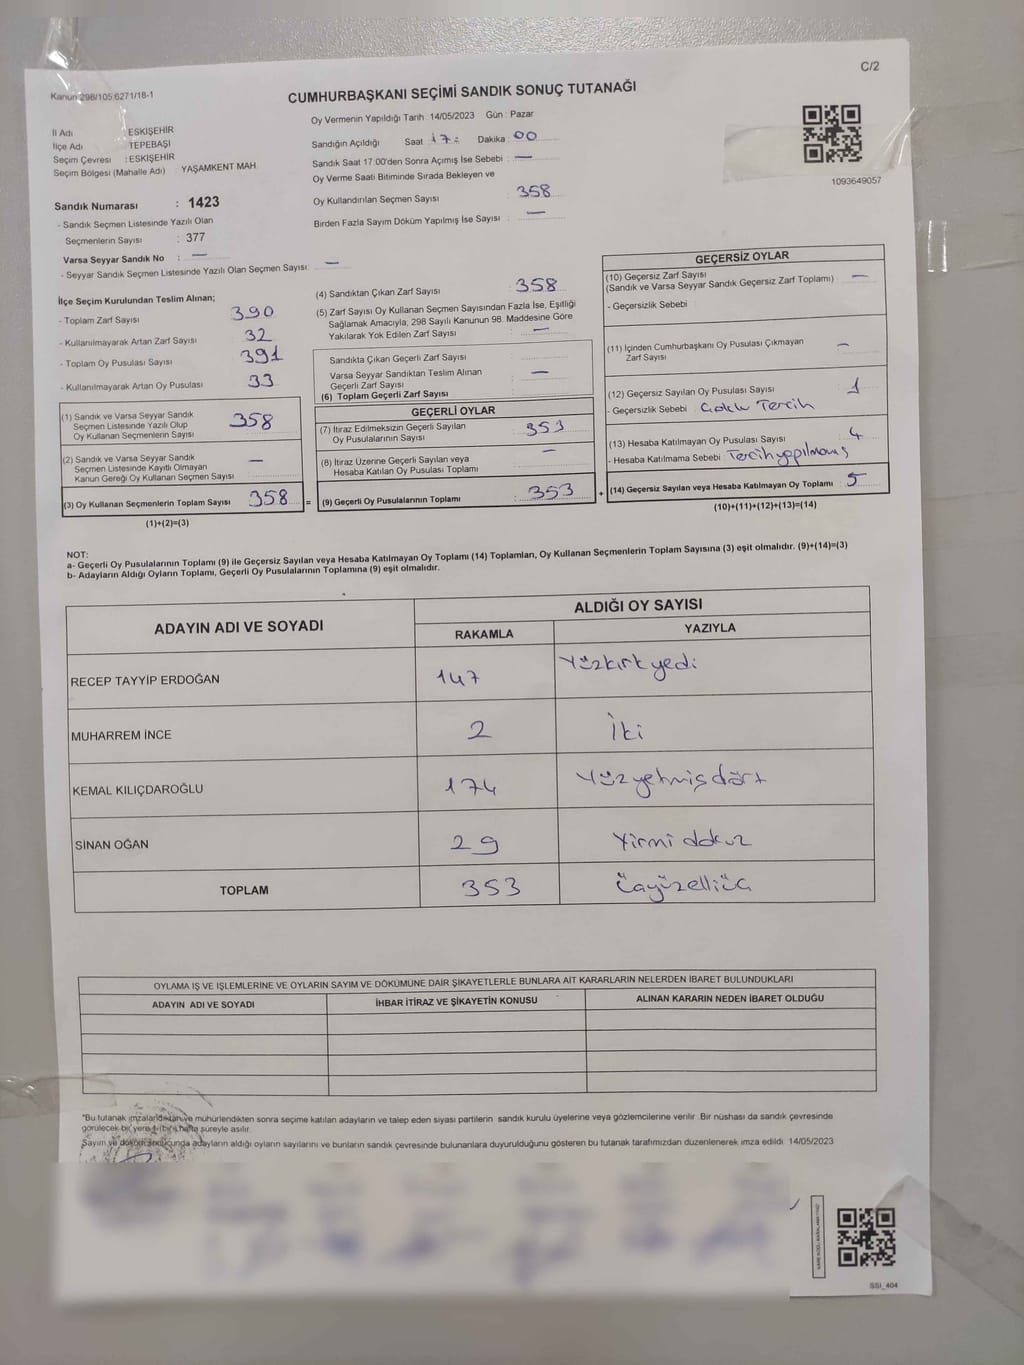 C/2
Kanun:298/105 6271/18-1
CUMHURBAŞKANI SEÇİMİ SANDIK SONUÇ TUTANAĞI
İl Adı : ESKİŞEHİR
İlçe Adı : TEPEBAŞI
Seçim Çevresi : ESKİŞEHİR
Seçim Bölgesi (Mahalle Adı) : YAŞAMKENT MAH
Sandık Numarası : 1423
- Sandık Seçmen Listesinde Yazılı Olan
Seçmenlerin Sayısı : 377
Varsa Seyyar Sandık No : —
- Seyyar Sandık Seçmen Listesinde Yazılı Olan Seçmen Sayısı: —
Oy Vermenin Yapıldığı Tarih : 14/05/2023 Gün : Pazar
Sandığın Açıldığı Saat 17: Dakika 00
Sandık Saat 17:00'den Sonra Açımış İse Sebebi : —
Oy Verme Saati Bitiminde Sırada Bekleyen ve
Oy Kullandırılan Seçmen Sayısı : 358
Birden Fazla Sayım Döküm Yapılmış İse Sayısı : —
1093649057
İlçe Seçim Kurulundan Teslim Alınan;
- Toplam Zarf Sayısı : 390
- Kullanılmayarak Artan Zarf Sayısı : 32
- Toplam Oy Pusulası Sayısı : 391
- Kullanılmayarak Artan Oy Pusulası : 33
(1) Sandık ve Varsa Seyyar Sandık
Seçmen Listesinde Yazılı Olup
Oy Kullanan Seçmenlerin Sayısı : 358
(2) Sandık ve Varsa Seyyar Sandık
Seçmen Listesinde Kayıtlı Olmayan
Kanun Gereği Oy Kullanan Seçmen Sayısı : —
(3) Oy Kullanan Seçmenlerin Toplam Sayısı : 358 =
(1)+(2)=(3)
(4) Sandıktan Çıkan Zarf Sayısı : 358
(5) Zarf Sayısı Oy Kullanan Seçmen Sayısından Fazla İse, Eşitliği
Sağlamak Amacıyla, 298 Sayılı Kanunun 98. Maddesine Göre
Yakılarak Yok Edilen Zarf Sayısı : —
Sandıkta Çıkan Geçerli Zarf Sayısı :
Varsa Seyyar Sandıktan Teslim Alınan
Geçerli Zarf Sayısı : —
(6) Toplam Geçerli Zarf Sayısı :
GEÇERLİ OYLAR
(7) İtiraz Edilmeksizin Geçerli Sayılan
Oy Pusulalarının Sayısı : 353
(8) İtiraz Üzerine Geçerli Sayılan veya
Hesaba Katılan Oy Pusulası Toplamı : —
(9) Geçerli Oy Pusulalarının Toplamı : 353 +
GEÇERSİZ OYLAR
(10) Geçersiz Zarf Sayısı : —
(Sandık ve Varsa Seyyar Sandık Geçersiz Zarf Toplamı)
- Geçersizlik Sebebi :
(11) İçinden Cumhurbaşkanı Oy Pusulası Çıkmayan
Zarf Sayısı : —
(12) Geçersiz Sayılan Oy Pusulası Sayısı : 1
- Geçersizlik Sebebi : Çoklu Tercih
(13) Hesaba Katılmayan Oy Pusulası Sayısı : 4
- Hesaba Katılmama Sebebi : Tercih yapılmamış
(14) Geçersiz Sayılan veya Hesaba Katılmayan Oy Toplamı : 5
(10)+(11)+(12)+(13)=(14)
NOT:
a- Geçerli Oy Pusulalarının Toplamı (9) ile Geçersiz Sayılan veya Hesaba Katılmayan Oy Toplamı (14) Toplamları, Oy Kullanan Seçmenlerin Toplam Sayısına (3) eşit olmalıdır. (9)+(14)=(3)
b- Adayların Aldığı Oyların Toplamı, Geçerli Oy Pusulalarının Toplamına (9) eşit olmalıdır.
ADAYIN ADI VE SOYADI ALDIĞI OY SAYISI
RAKAMLA YAZIYLA
RECEP TAYYİP ERDOĞAN 147 Yüzkırkyedi
MUHARREM İNCE 2 İki
KEMAL KILIÇDAROĞLU 174 Yüzyetmişdört
SİNAN OĞAN 29 Yirmi dokuz
TOPLAM 353 Üçyüzelliüç
OYLAMA İŞ VE İŞLEMLERİNE VE OYLARIN SAYIM VE DÖKÜMÜNE DAİR ŞİKAYETLERLE BUNLARA AİT KARARLARIN NELERDEN İBARET BULUNDUKLARI
ADAYIN ADI VE SOYADI İHBAR İTİRAZ VE ŞİKAYETİN KONUSU ALINAN KARARIN NEDEN İBARET OLDUĞU
*Bu tutanak imzalandıktan ve mühürlendikten sonra seçime katılan adayların ve talep eden siyası partilerin sandık kurulu üyelerine veya gözlemcilerine verilir. Bir nüshası da sandık çevresinde
görülecek bir yere 1 (bir) hafta süreyle asılır.
Sayım ve döküm sonucunda adayların aldığı oyların sayılarını ve bunların sandık çevresinde bulunanlara duyurulduğunu gösteren bu tutanak tarafımızdan düzenlenerek imza edildi. 14/05/2023
SSI_404